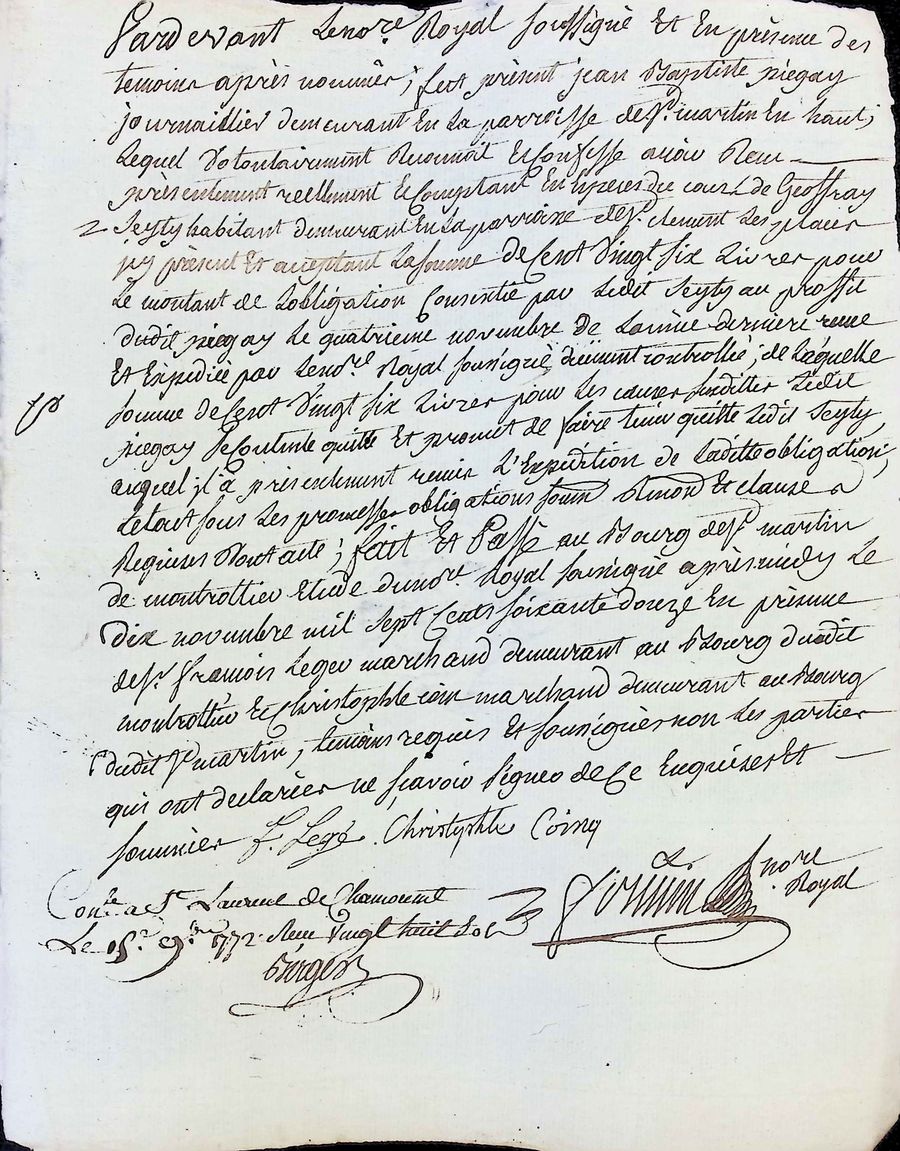 Pardevant Lenore Royal soussigné Et En présence des
temoins après nommés; fut présent jean Baptiste piegay
journaillier demeurant En La parroisse de St. martin En haut,
Lequel Volontairement Reconnoit Et Confesse avoir Recu
présentement réellement Et Comptant En Especes du cours de Geoffray
Seyty habitant demeurant En La parroisse de St. clement Les places
jcy présent Et acceptant La somme de Cent Vingt six Livres pour
Le montant de Lobligation Consentie par Ledit Seyty au proffit
dudit piegay Le quatrieme novembre de Lannée derniere recue
Et Expediée par Lenore Royal soussigné, düement controllée; de Laquelle
somme de Cent Vingt six Livres pour Les causes susdittes Ledit
piegay se Contente quitte Et promet de faire tenir quitte Ledit Seyty
auquel jl a présentement remis L'Expédition de Laditte obligation,
Letout sous Les promesses obligations soum Renon Et clauses
Requises Dont acte; fait Et Passé au Bourg de St martin
de montrottier Etude dunore Royal soussigné après midy Le
dix novembre mil sept Cents soixante douze En présence
de sr. francois Leger marchand demeurant au Bourg dudit
montrottier Et Christophle coin marchand demeurant au Bourg
dudit St martin, temoins requis Et soussignés non Les parties
qui ont declarées ne sçavoir signer de Ce Enquises Et
sommées F. Legé. Christophle Coing
nore
Royal
Conle a St Laurent de Chamousset
Le 15e. 9bre 1772. Recu Vingt huit sols
Berger